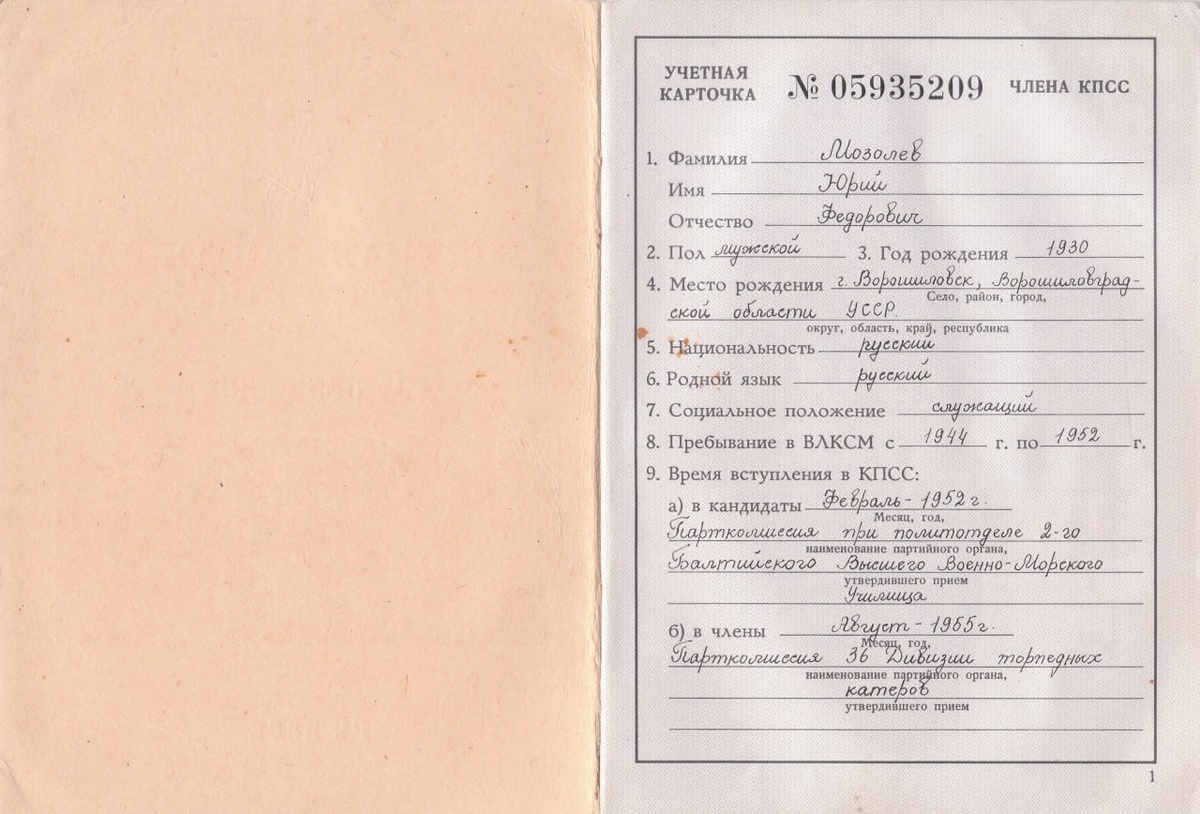 УЧЕТНАЯ КАРТОЧКА № 05935209 ЧЛЕНА КПСС
1. Фамилия Мозолев
Имя Юрий
Отчество Федорович
2. Пол мужской 3. Год рождения 1930
4. Место рождения г. Ворошиловск, Ворошиловград-
Село, район, город,
ской области УССР.
округ, область, край, республика
5. Национальность русский
6. Родной язык русский
7. Социальное положение служащий
8. Пребывание в ВЛКСМ с 1944 г. по 1952 г.
9. Время вступления в КПСС:
а) в кандидаты Февраль - 1952 г.
Месяц, год,
Парткомиссия при политотделе 2-го
наименование партийного органа,
Балтийского Высшего Военно-Морского
утвердившего прием
Училища
б) в члены Август - 1955 г.
Месяц, год,
Парткомиссия 36 Дивизии торпедных
наименование партийного органа,
катеров
утвердившего прием
1